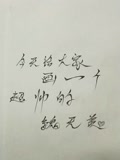 今天给大家
画一个
超帅的
魏无羡